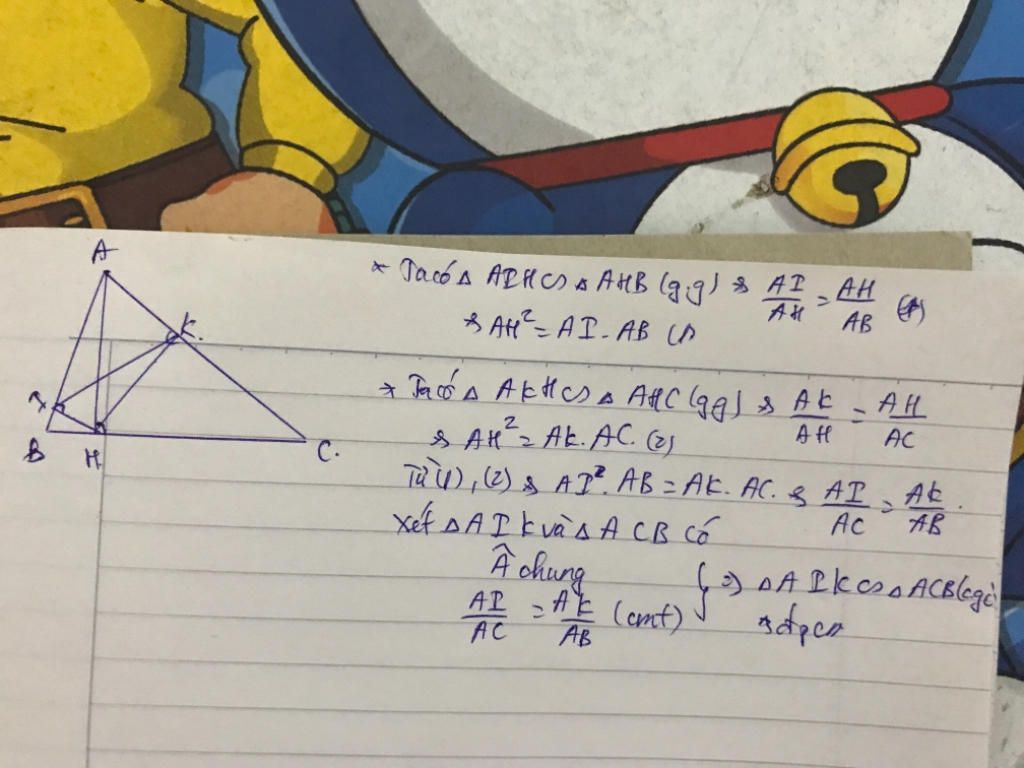 A
K.
I
B H C.
* Ta có △ AIH ∽ △ AHB (g.g) => AI/AH = AH/AB
=> AH² = AI . AB (1)
* Ta có △ AKH ∽ △ AHC (gg) => AK/AH = AH/AC
=> AH² = AK. AC. (2)
Từ (1), (2) => AI². AB = AK. AC. => AI/AC = AK/AB.
Xét △ AIK và △ ACB có
Â chung
AI/AC = AK/AB (cmt) } => △ AIK ∽ △ ACB (cgc)
=> đpcm